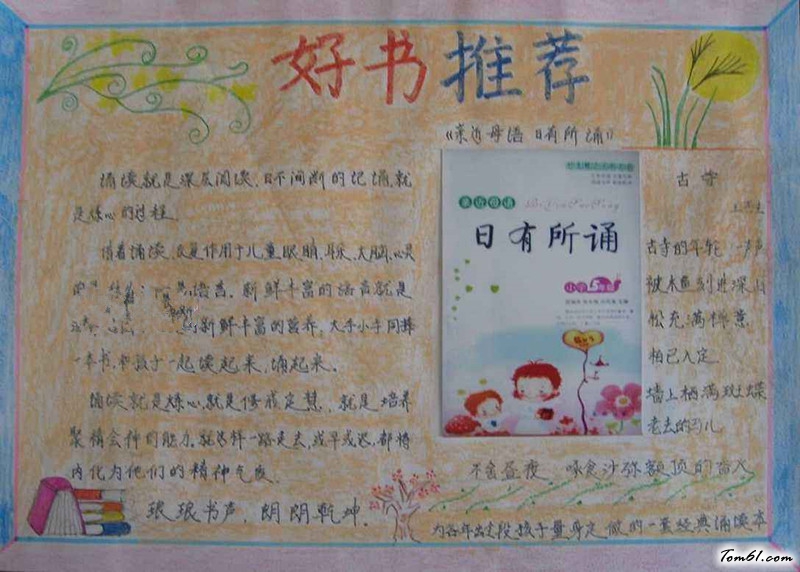 好书推荐
《亲近母语 日有所诵》
诵读就是深层阅读,日不间断的记诵,就
是炼心的过程。
借着诵读,反复作用于儿童眼睛、耳朵、大脑、心灵
的 语言。新鲜丰富的语言就是
新鲜丰富的营养。大手小手同捧
一本书,和孩子一起读起来,诵起来。
诵读就是炼心,就是修戒定慧,就是培养
聚精会神的能力。就这样一路走去,或早或迟,都将
内化为他们的精神气度。
琅琅书声,朗朗乾坤。
亲近母语
日有所诵
小学
古寺
古寺的年轮 一声声
被木鱼刻进深山
松充满禅意
柏已入定
墙上栖满蝴蝶
老去的
不舍昼夜 啄食沙弥额顶的香火
为各年龄段孩子量身定做的一套经典诵读本
Tom61.com